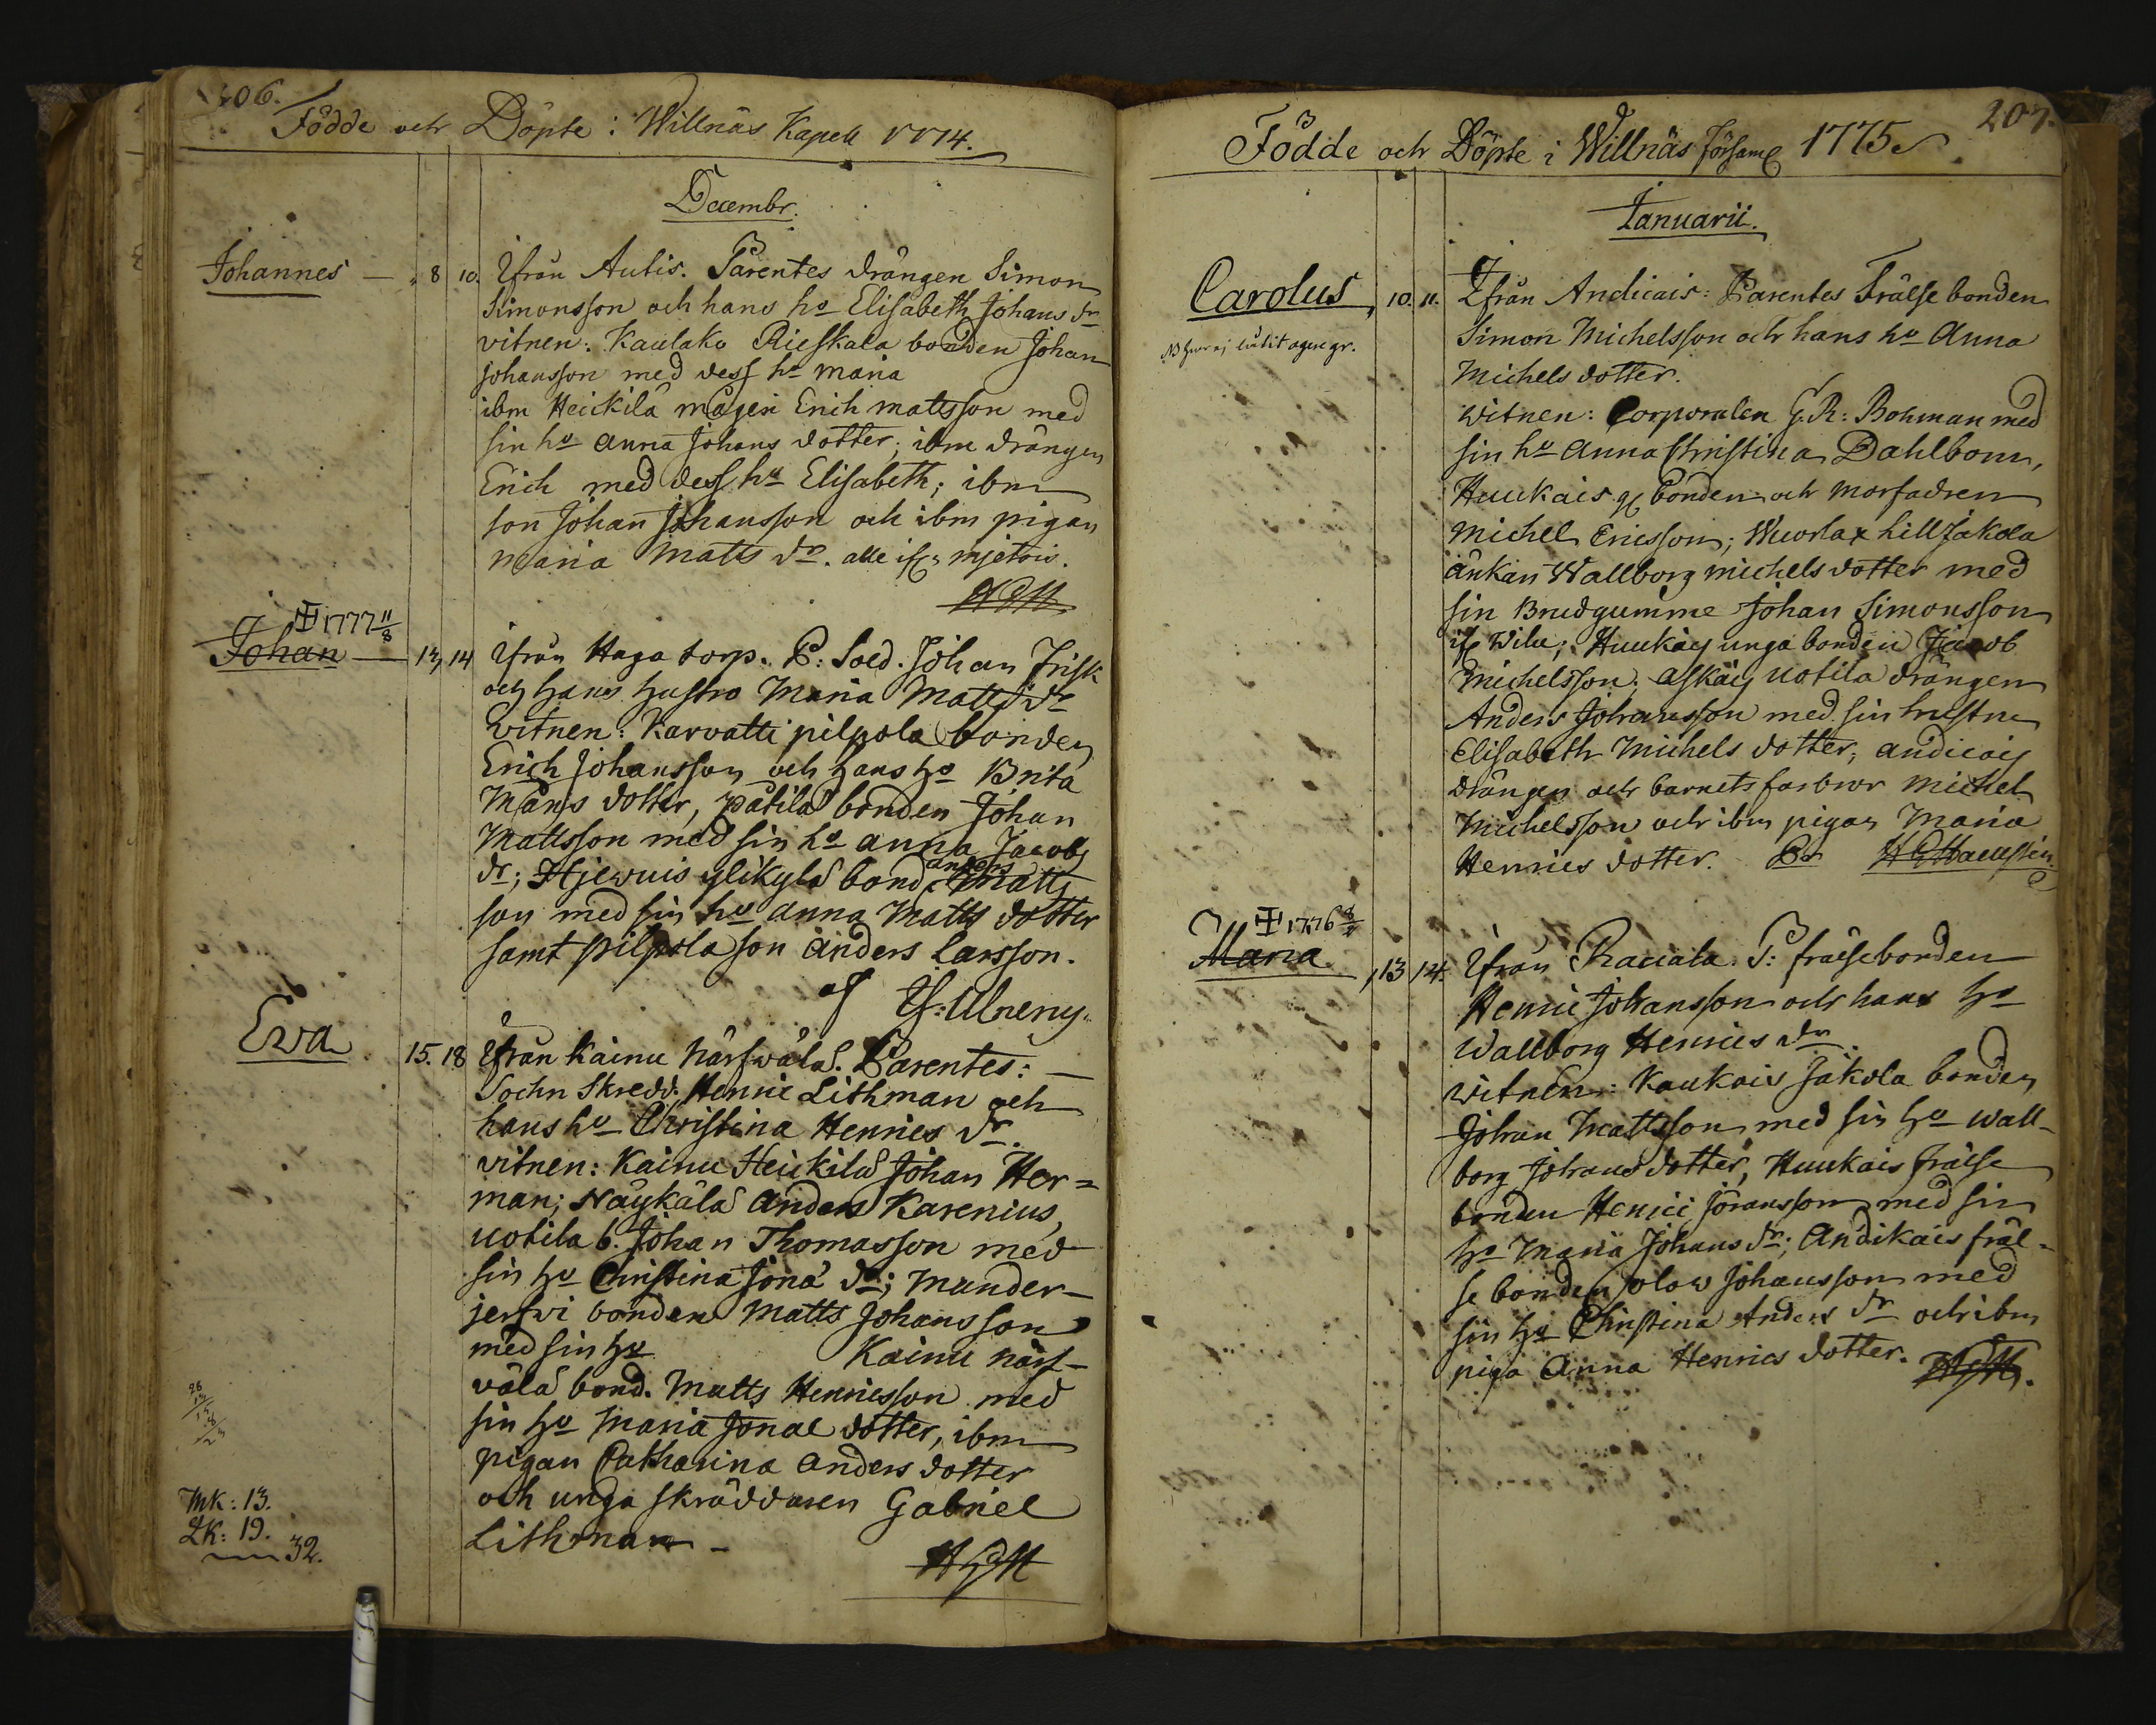 206.
Födde och Döpte i Willnäs Kapell 1774.
Decembr.
Johannes — 8 10. Ifrån Autis. Parentes drängen Simon
Simonsson och hans ho Elisabeth Johans dr
vitnen: Kaulako Rieskala bonden Johan
Johansson med dess ho Maria
ibm Heickilä mågen Erich mattsson med
sin ho anna Johans dotter; ibm drängen
Erich med dess ho Elisabeth; ibm
son Johan Johansson och ibm pigan
maria Matts dr. alle ifr. mjetois.
HGH
1777 11/8
Johan — 13, 14 Ifrån Haga torp. P: Sold. Johan Frisk
och hans hustro Maria Matts dr
vitnen: Karvatti pilpola bonden
Erich Johansson och hans ho Brita
Måns dotter, pätilä bonden Johan
Mattsson med sin ho anna Jacobs
dr; Hjerwuis ylikylä bond. anders Matts
son med sin ho anna Matts dotter
samt pilpola son anders Larsson.
af
Ewa 15. 18 Ifrån Kainu Närfwälä. Parentes: —
Sochn Skredd. Henric Lithman och
hans ho Christina Henrics dr.
vitnen: Kainu Heickilä Johan Her=
man; Näykälä anders Karenius,
uotila b. Johan Thomasson med
sin ho Christina Jona dr; Mander-
jerfvi bonden Matts Johansson
med sin ho Kainu närf-
välä bond. Matts Henricsson med
sin ho Maria Jonae dotter, ibm
pigan Catharina anders dotter
och unga skräddaren Gabriel
Lithman —
HGH
Mk: 13.
Lk: 19.
32.
207.
Födde och Döpte i Willnäs Församl 1775
Januarii.
Carolus, 10. 11. Ifrån Andicais: Parentes Frälse bonden
Simon Michelsson och hans ho Anna
Michels dotter.
witnen: Corporalen G. R: Bohman med
sin ho Anna Christina Dahlbom,
Huukais bonden och morfadren
Michel Ericsson; Wuorlax hill Jakola
änkan Wallborg michels dotter med
sin Brudgumme Johan Simonsson
if Wilu; Huukais unga bonden Jacob
Michelsson; askäis uotila drängen
Anders Johansson med sin hustru
Elisabeth Michels dotter; andicais
drängen och barnets farbror Michel
Michelsson och ibm pigan Maria
Henrics dotter.
1776
Maria ,13 14. Ifrån Raciala. P: frälsebonden
Henric Johansson och hans ho
Wallborg Henrics dr.
witnen: Kaukais Jakola bonden
Johan Mattsson med sin ho Wall-
borg Johans dotter, Huukais frälse
bonden Henric Jöransson med sin
ho Maria Johans dr; Andikais fräl-
se bonden olow Johansson med
sin ho Christina Anders dr och ibm
piga Anna Henrics dotter. HGH.